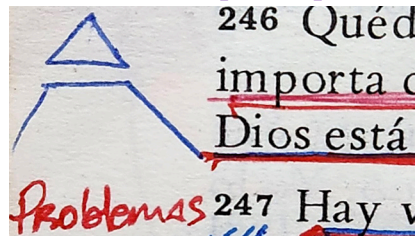 246 Quéd
importa
Dios está
Problemas
247 Hay v